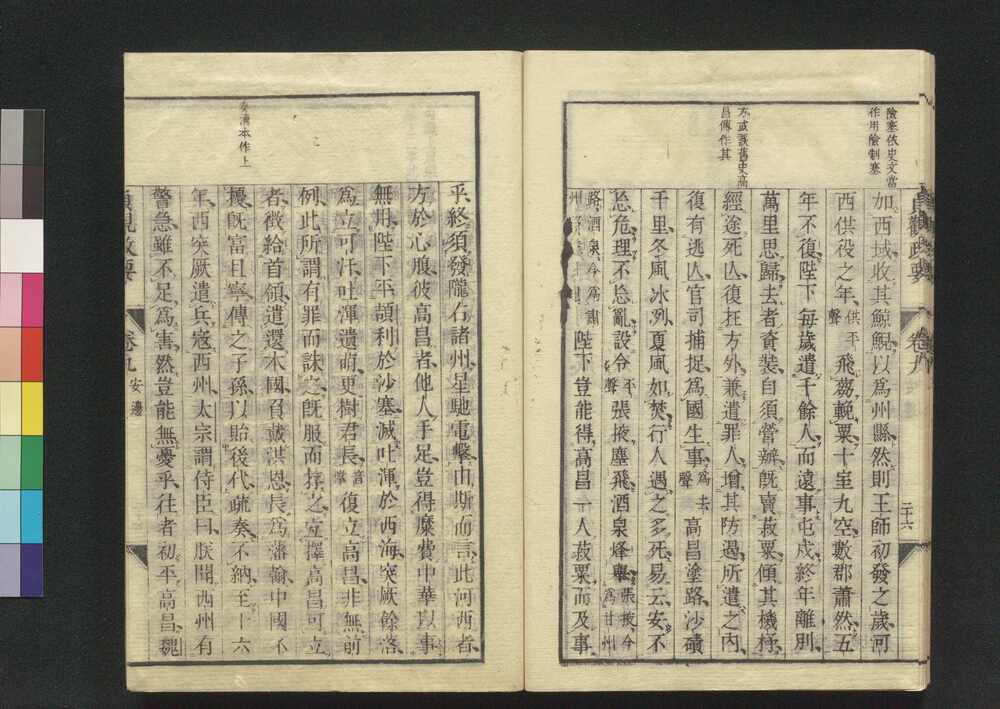 險塞依史文當
作用險制塞
不或訛舊史高
昌傳作其
貞觀政要
卷九
二十六
加西域收其鯨鯢以爲州縣然則王師初發之歲河
西供役之年供平聲飛芻輓粟十室九空數郡蕭然五
年不復陛下每歲遣千餘人而遠事屯戍終年離別
萬里思歸去者資裝自須營辦旣賣菽粟傾其機杼
經途死亾復在方外兼遣罪人增其防遏所遣之內
復有逃亾官司捕捉爲國生事爲去聲高昌塗路沙磧
千里冬風冰冽夏風如焚行人遇之多死易云安不
忘危理不忘亂設令平聲張掖塵飛酒泉烽舉張掖今爲甘州
路酒泉今爲肅州陛下豈能得高昌一人菽粟而及事
安淸本作上
乎終須發隴右諸州星馳電擊由斯而言此河西者
方於心腹彼高昌者他人手足豈得糜費中華以事
無用陛下平頡利於沙塞滅吐渾於西海突厥餘落
爲立可汗吐渾遺萌更樹君長音掌復立高昌非無前
例此所謂有罪而誅之旣服而存之宜擇高昌可立
者徵給首領遣還本國負戴洪恩長爲藩翰中國不
擾旣富且寧傳之子孫以貽後代疏奏不納至十六
年西突厥遣兵寇西州太宗謂侍臣曰朕聞西州有
警急雖不足爲害然豈能無憂乎往者初平高昌魏
貞觀政要
卷九
安邊